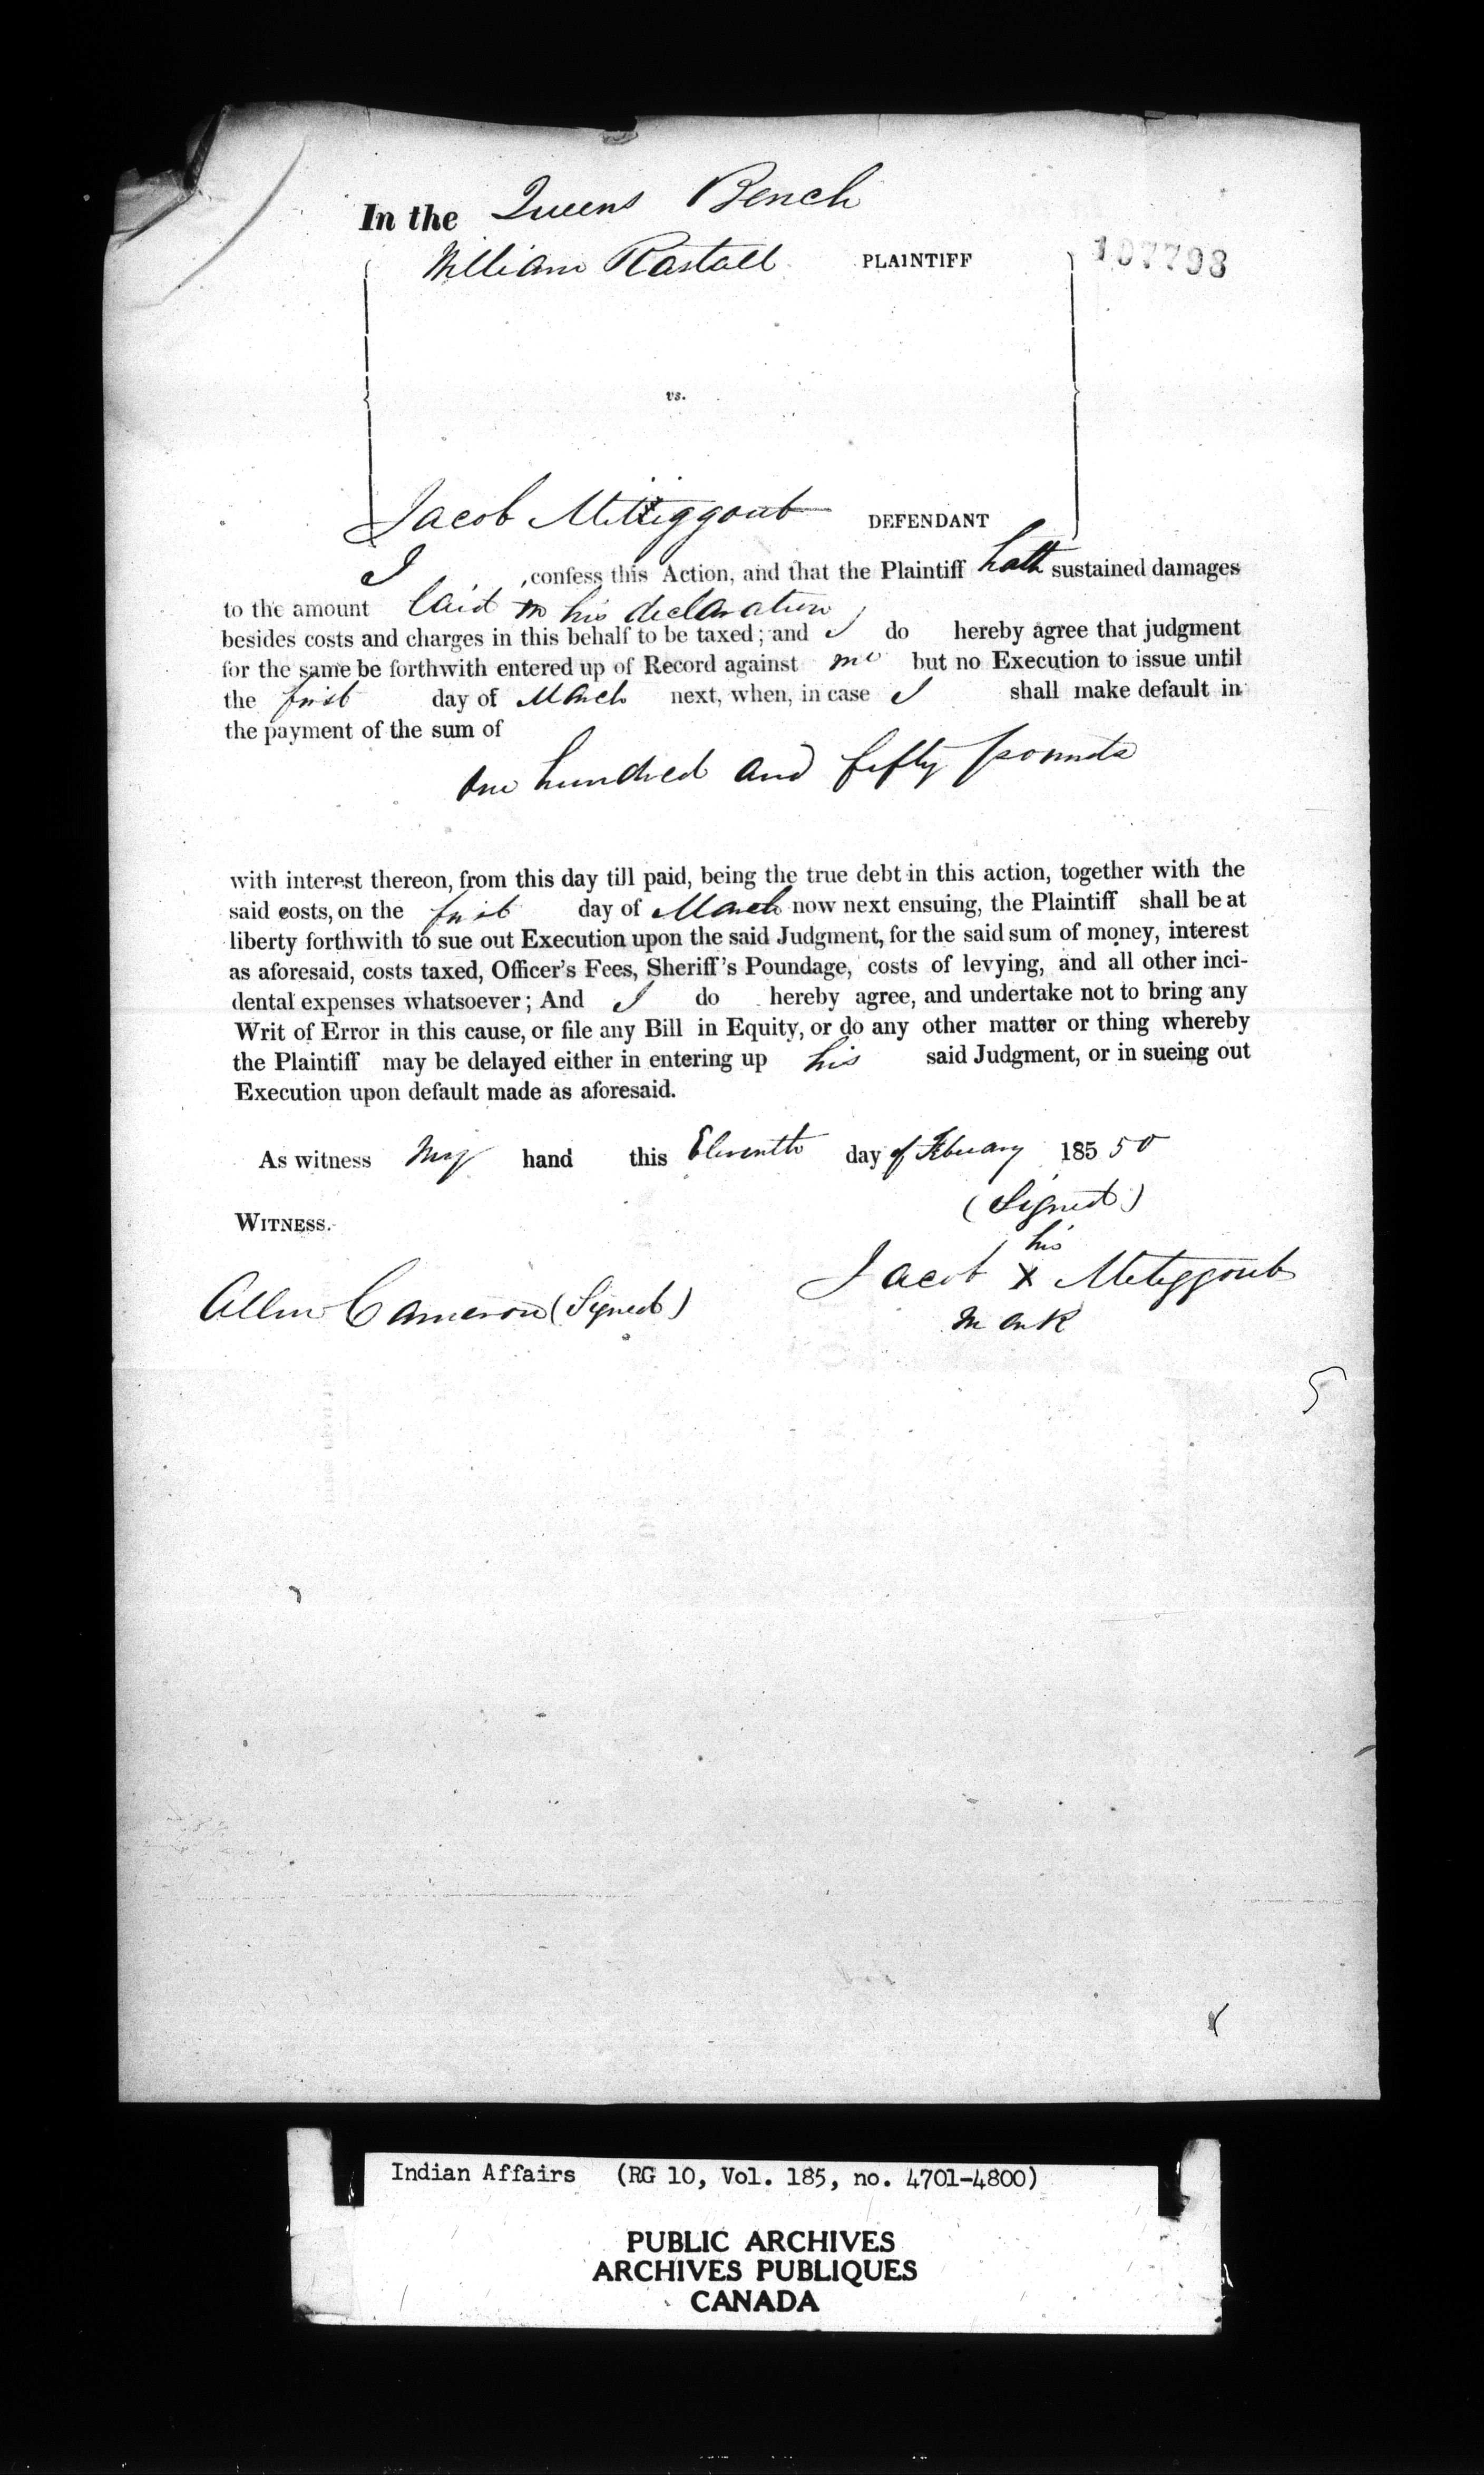 In the Queens Bench
William Rastall PLAINTIFF
107798
vs.
Jacob Metiggoub DEFENDANT
I confess this Action, and that the Plaintiff hath sustained damages
to the amount laid in his declaration
besides costs and charges in this behalf to be taxed; and I do hereby agree that judgment
for the same be forthwith entered up of Record against me but no Execution to issue until
the first day of March next, when, in case I shall make default in
the payment of the sum of
One hundred and fifty pounds
with interest thereon, from this day till paid, being the true debt in this action, together with the
said costs, on the first day of March now next ensuing, the Plaintiff shall be at
liberty forthwith to sue out Execution upon the said Judgment, for the said sum of money, interest
as aforesaid, costs taxed, Officer's Fees, Sheriff's Poundage, costs of levying, and all other inci-
dental expenses whatsoever; And I do hereby agree, and undertake not to bring any
Writ of Error in this cause, or file any Bill in Equity, or do any other matter or thing whereby
the Plaintiff may be delayed either in entering up his said Judgment, or in sueing out
Execution upon default made as aforesaid.
As witness my hand this Eleventh day of February 185 50
(Signed)
WITNESS.
his
Jacob X Metiggoub
mark
Allen Cameron (Signed)
5
Indian Affairs (RG 10, Vol. 185, no. 4701-4800)
PUBLIC ARCHIVES
ARCHIVES PUBLIQUES
CANADA